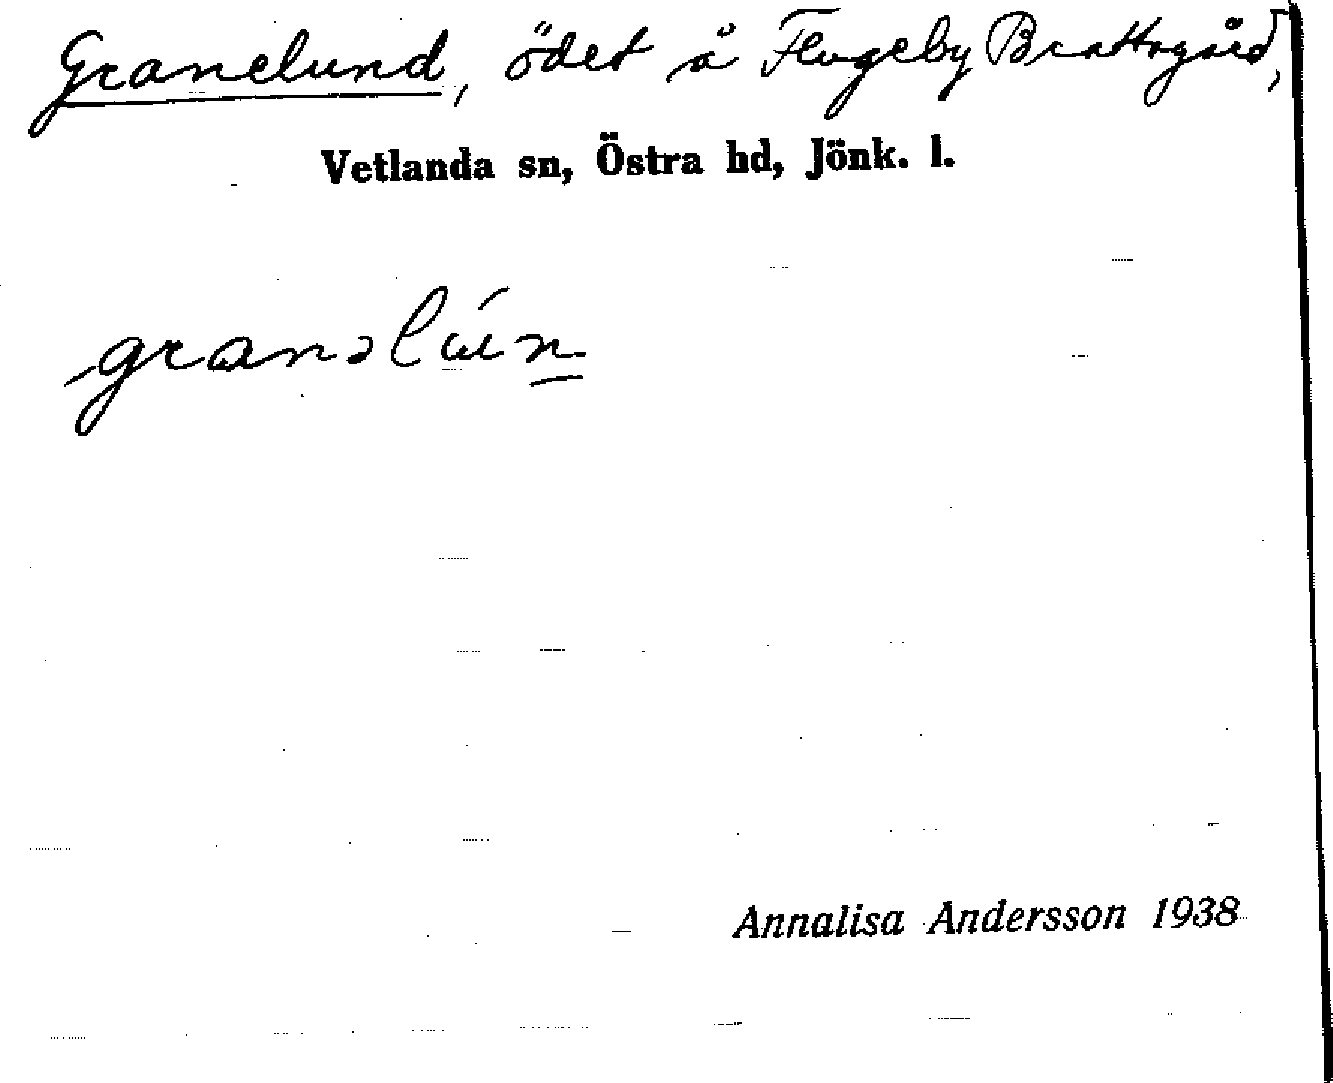 Granelund, ödet å Flugeby Brattsgård,
Vetlanda sn, Östra hd, Jönk. l.
Annalisa Andersson 1938